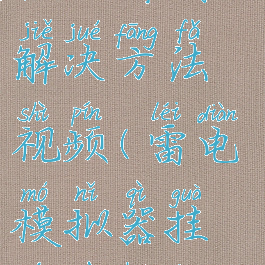 jiě jué fāng fǎ
解决方法
shì pín léi diàn
视频(雷电
mó nǐ qì guà
模拟器挂